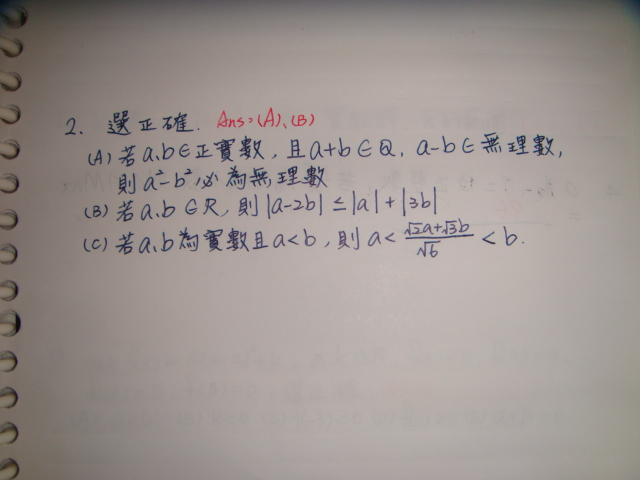 2. 選正確. Ans:(A)、(B)
(A) 若a、b∈正實數, 且a+b∈Q, a-b∈無理數,
則a²-b²必為無理數
(B) 若a、b∈R, 則|a-2b|≤|a|+|3b|
(C) 若a、b為實數且a<b, 則a< (√2a+√3b)/√6 <b.